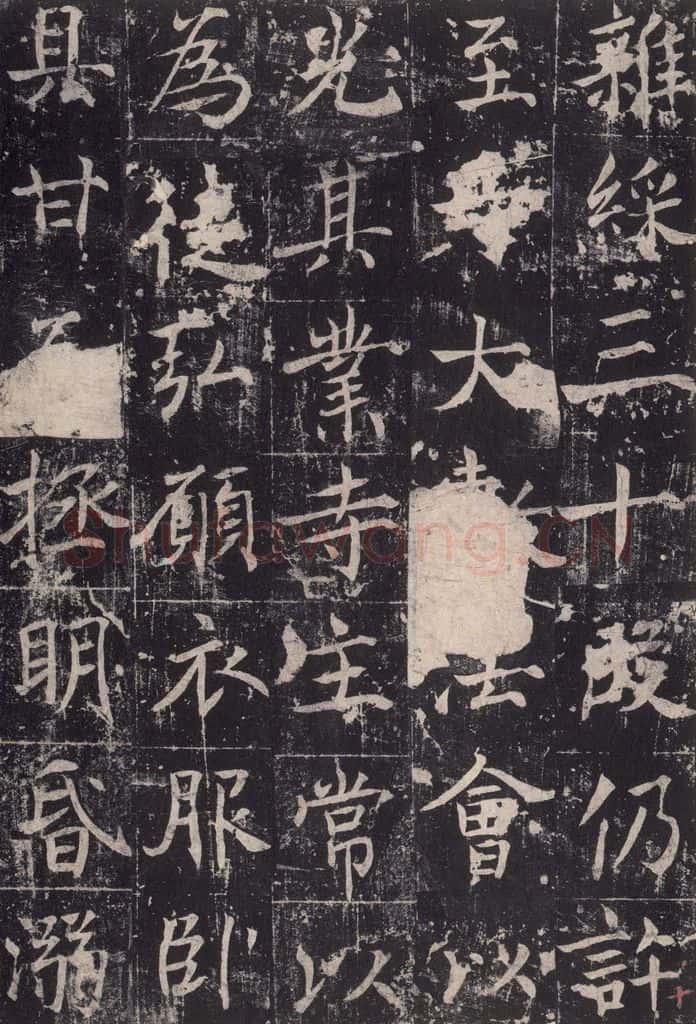 雜綵三十段仍許
至大會以
光其業寺住常以
為徒弘願衣服臥
具甘拯明昏溺
Shufawang.CN